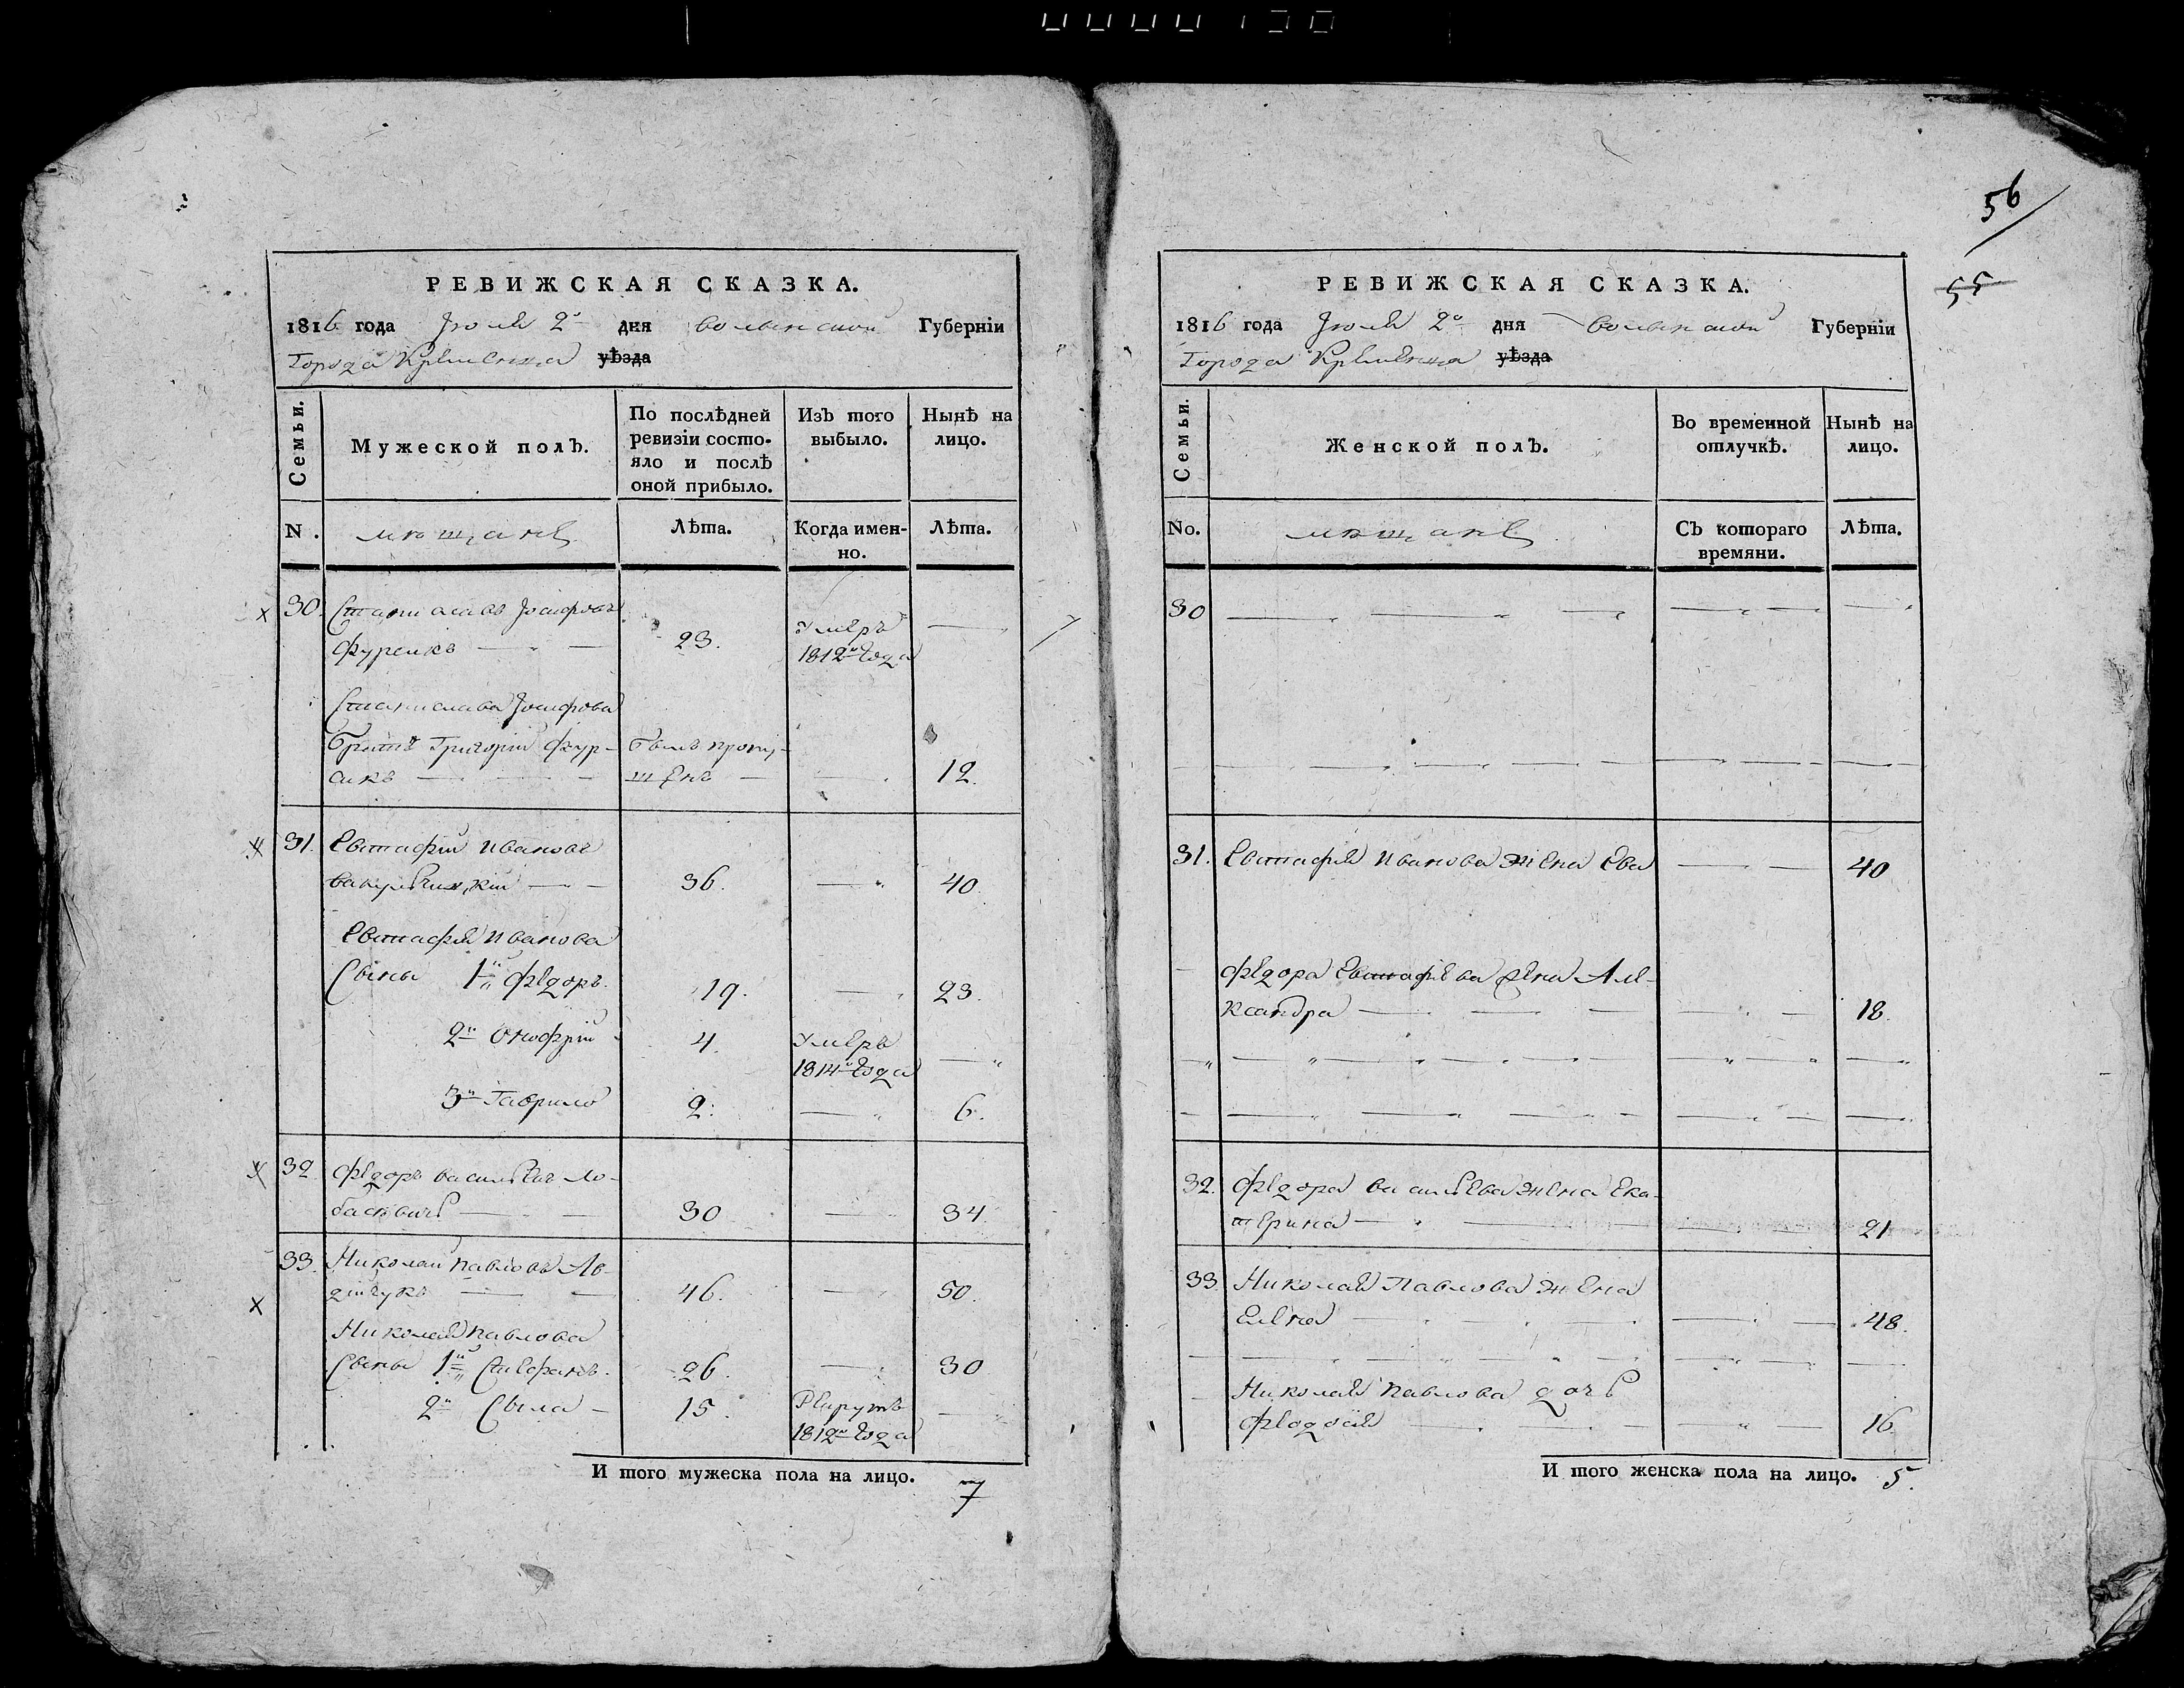 56
55
РЕВИЖСКАЯ СКАЗКА.
1816 года Іюля 2го дня Волынской Губерніи
Города Кременца уѣзда
Семьи.
Мужеской полъ.
По послѣдней ревизіи состо-
яло и послѣ
оной прибыло.
Изъ того
выбыло.
Нынѣ на
лицо.
N.
мѣщане
Лѣта.
Когда имен-
но.
Лѣта.
30. Станиславъ Іосифовъ
23. Умеръ
1812го года
Станислава Іосифова
братъ Григорій Фур-
сикъ
былъ пропу-
щенъ
12.
31. Евстафій Ивановъ
36. 40.
Евстафія Иванова
сыны 1й Федоръ. 19. 23.
2й Онофрій 4. Умеръ
1814го года
3й Гаврило 2. 6.
32. Федоръ Васильевъ Ло-
30 34.
33. Николай Павловъ Ав-
дійчукъ 46. 50.
Николая Павлова
сыны 1й Стефанъ. 26. 30
2й Сыла 15. Рекрутъ
1812го года
И того мужеска пола на лицо. 7
РЕВИЖСКАЯ СКАЗКА.
1816 года Іюля 2го дня Волынской Губерніи
Города Кременца уѣзда
Семьи.
Женской полъ.
Во временной
отлучкѣ.
Нынѣ на
лицо.
No.
мѣщане
Съ котораго
времяни.
Лѣта.
30
31. Евстафія Иванова жена Ева 40
Федора Евстафіева жена Але-
ксандра 18.
32. Федора Васильева жена Ека-
терина 21
33. Николая Павлова жена
Елена 48.
Николая Павлова дочь
Феодосія 16.
И того женска пола на лицо. 5.